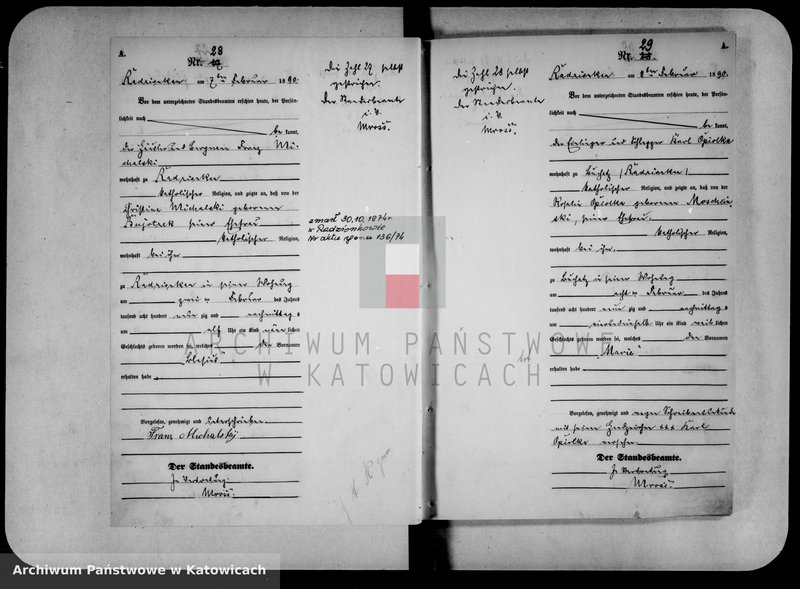 A.
28
Nr. 17
Radzionkau am 7ten Februar 1890.
Vor dem unterzeichneten Standesbeamten erschien heute, der Persön-
lichkeit nach
be kannt,
der Häusler und Bergmann Franz Mi-
chalski
wohnhaft zu Radzionkau
katholischer Religion, und zeigte an, daß von der
Christine Michalski geborenen
seiner Ehefrau
katholischer Religion,
wohnhaft bei ihm
zu Radzionkau in seiner Wohnung
am zwei ten Februar des Jahres
tausend acht hundert neun zig und nachmittags
um elf Uhr ein Kind männ lichen
Geschlechts geboren worden sei, welches den Vornamen
Blasius
erhalten habe.
Vorgelesen, genehmigt und unterschrieben.
Franz Michalsky
Der Standesbeamte.
In Vertretung.
Mrosz.
Die Zahl 27 selbst
gestrichen.
Der Standesbeamte
i. V.
Mrosz.
zmarł 30.10.1874r
w Radzionkowie
Nr aktu zgonu 136/74
Die Zahl 28 selbst
gestrichen.
Der Standesbeamte
i. V.
Mrosz.
A.
29
Nr. 28.
Radzionkau am 8ten Februar 1890.
Vor dem unterzeichneten Standesbeamten erschien heute, der Persön-
lichkeit nach
be kannt,
der Einlieger und Schlepper Karl Opiolka
wohnhaft zu Buchatz (Radzionkau)
katholischer Religion, und zeigte an, daß von der
Rosalie Opiolka geborenen
seiner Ehefrau
katholischer Religion,
wohnhaft bei ihm,
zu Buchatz in seiner Wohnung
am ten Februar des Jahres
tausend acht hundert neun zig und nachmittags
um Uhr ein Kind weib lichen
Geschlechts geboren worden sei, welches den Vornamen
"Marie"
erhalten habe
Vorgelesen, genehmigt und wegen Schreibensunkunde
mit seinem Handzeichen +++ Karl
Opiolka versehen.
Der Standesbeamte.
In Vertretung.
Mrosz.
ARCHIWUM PAŃSTWOWE
W KATOWICACH
Archiwum Państwowe w Katowicach